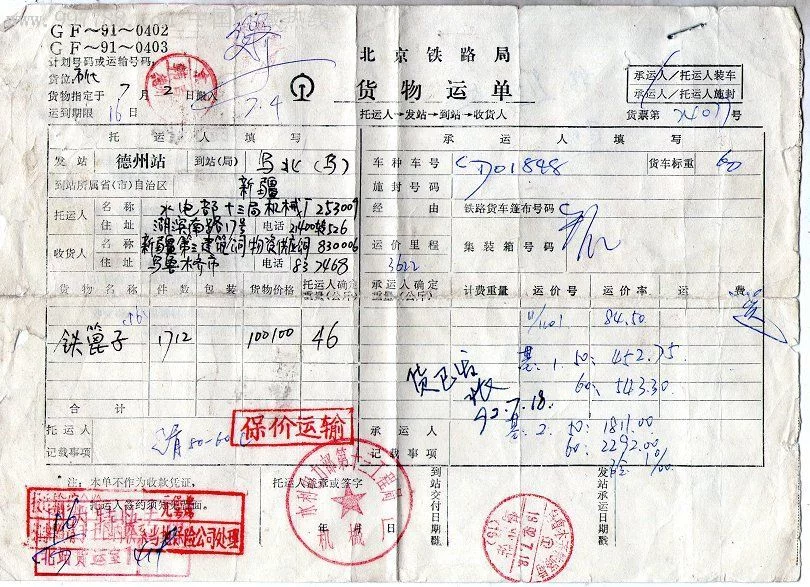 GF～91～0402
GF～91～0403
计划号码或运输号码:
货位:
货物指定于 7 月 2 日搬入
运到期限 16 日
7.4
北京铁路局
货物运单
托运人→发站→到站→收货人
承运人/托运人装车
承运人/托运人施封
货票第 号
托运人填写
承运人填写
发站 德州站 到站(局) 乌北(乌)
车种车号 CD01848 货车标重 60
到站所属省(市)自治区 新疆
施封号码
托运人 名称 水电部十三局机械厂 253009
经由 铁路货车篷布号码
住址 湖滨南路17号 电话 21400转526
收货人 名称 新疆第三建筑公司物资供应 830006
运价里程 3622 集装箱号码
住址 乌鲁木齐市 电话 837468
货物名称 件数 包装 货物价格 托运人确定重量(公斤) 承运人确定重量(公斤) 计费重量 运价号 运价率 运费
84.50
铁篦子 1712 100100 46
基.1. 50: 452.75
60: 543.30
货已
收
92.7.18.
合计
基.2. 50: 1811.00
60: 2292.00
托运人记载事项
保价运输
承运人记载事项
*注:本单不作为收款凭证,
托运人签约须知见背面。
托运人盖章或签字
年 月 日
到站交付日期戳
发站承运日期戳
水利电力部第十三工程局
机械厂
保险公司处理
北站货运室
19.92.7.18